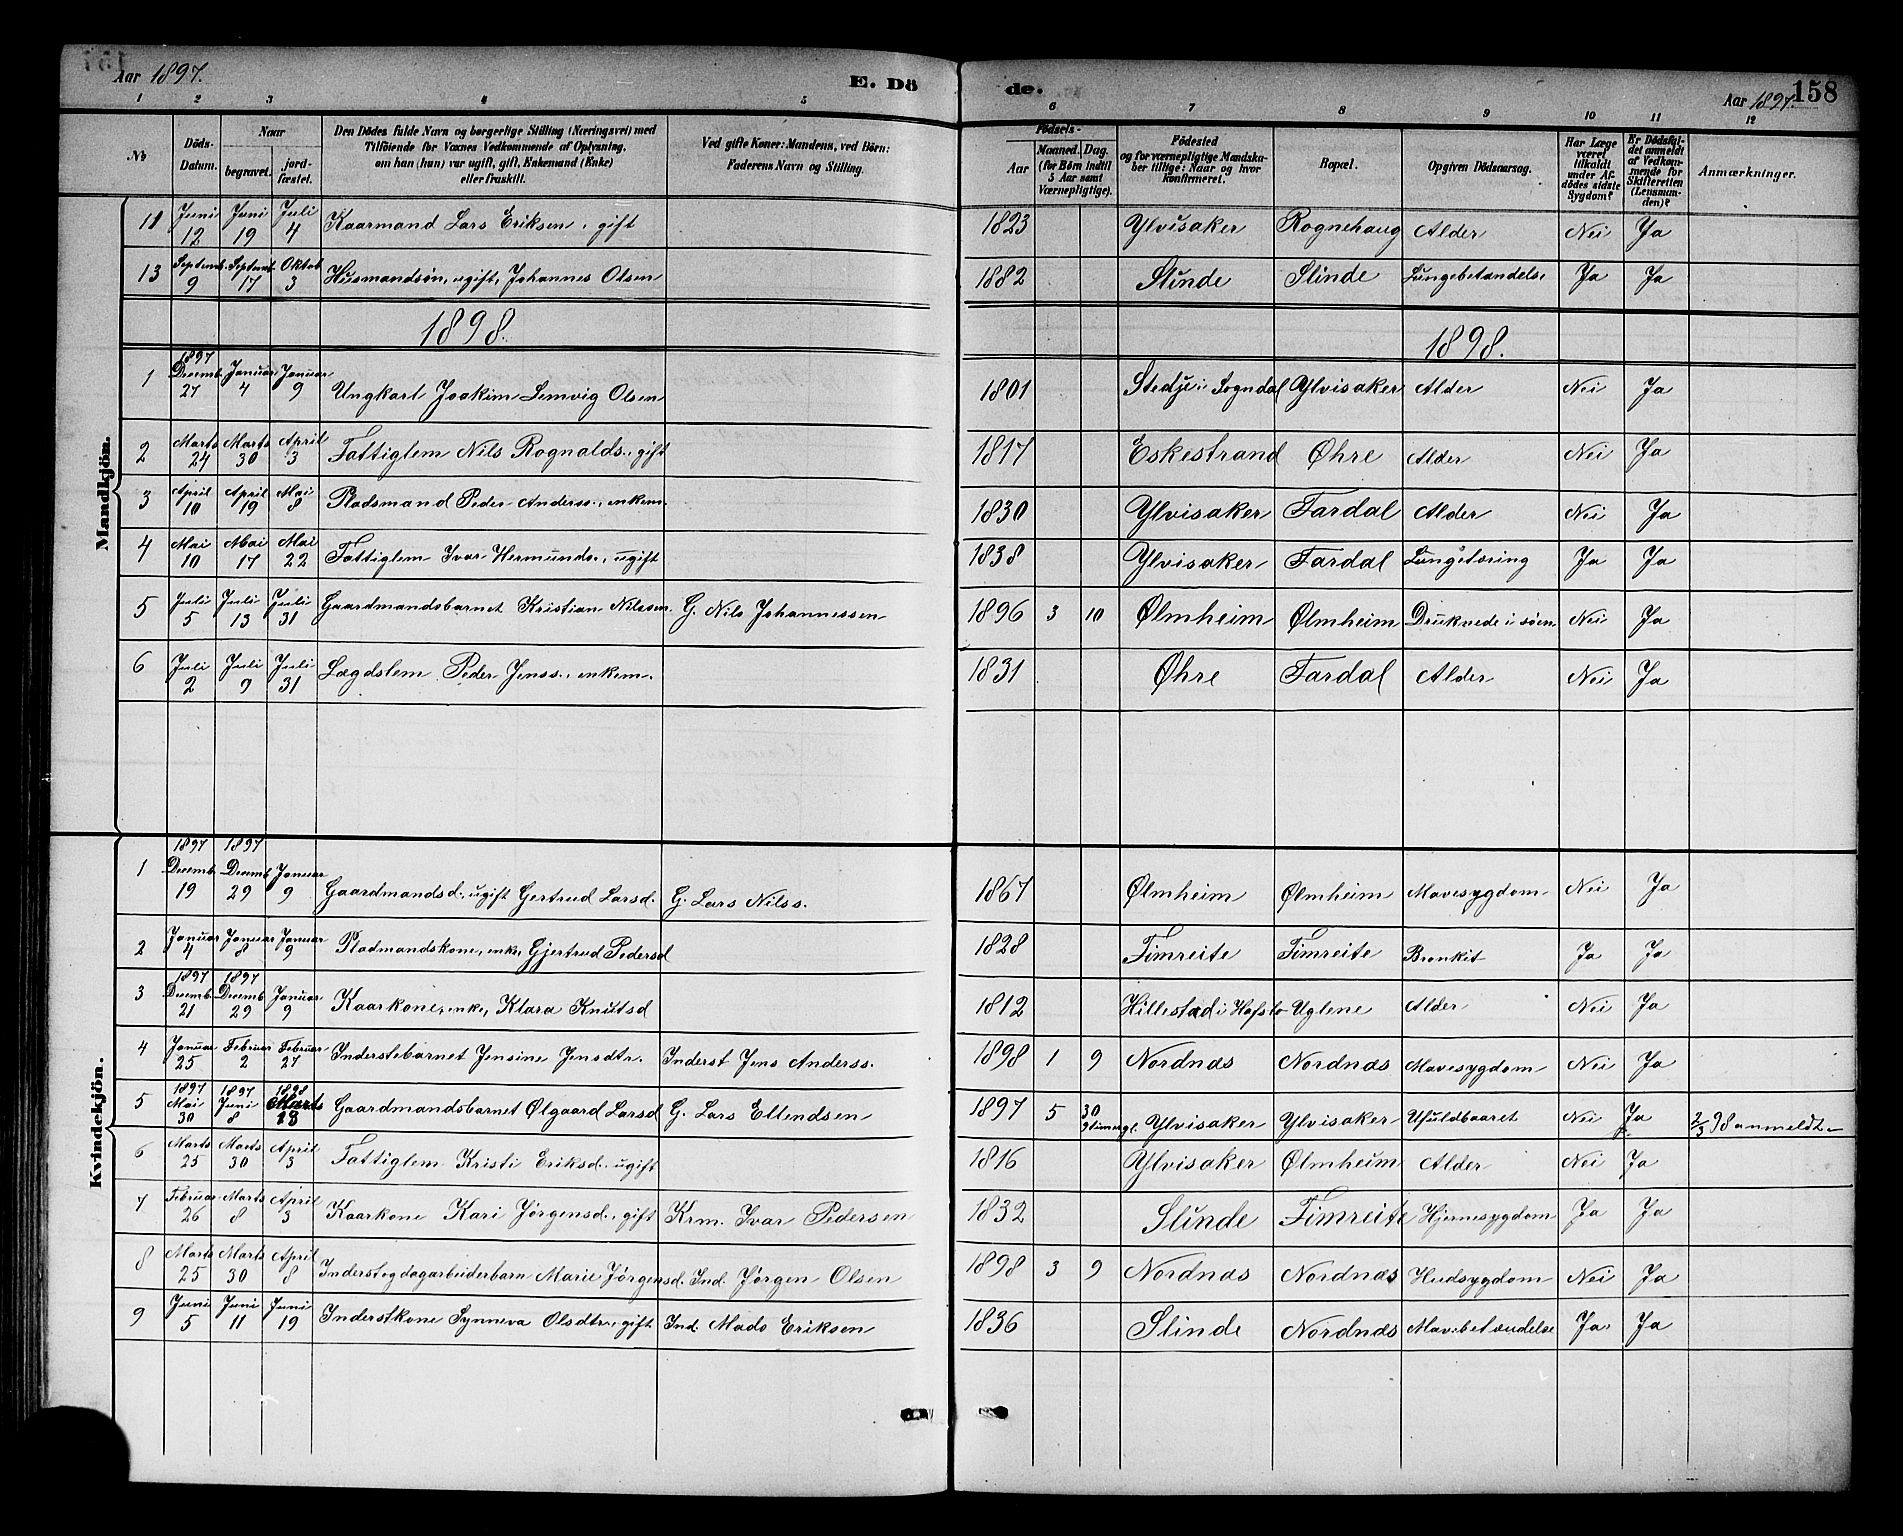 Aar 1897. E. Dö de. Aar 1897. 158
1 2 3 4 5 6 7 8 9 10 11 12
No Döds-Datum. Naar begravet. jord-fæstet. Den Dödes fulde Navn og borgerlige Stilling (Næringsvei) med Tilföiende for Voxnes Vedkommende af Oplysning, om han (hun) var ugift, gift, Enkemand (Enke) eller fraskilt. Ved gifte Koner: Mandens, ved Börn: Faderens Navn og Stilling. Födsels- Aar Maaned. Dag. (for Börn indtil 5 Aar samt Værnepligtige). Födested og for værnepligtige Mandska-ber tillige: Naar og hvor konfirmeret. Bopæl. Opgiven Dödsaarsag. Har Læge været tilkaldt under Af-dödes sidste Sygdom? Er Dödsfal-det anmeldt af Vedkom-mende for Skifteretten (Lensman-den)? Anmærkninger.
Mandkjön.
11 Juni 12 Juni 19 Juli 4 Kaarmand Lars Eriksen, gift 1823 Ylvisaker Rognehaug Alder Nei Ja
13 Septemb. 9 Septemb. 17 Oktob 3 Husmandsön, ugift, Johannes Olsen 1882 Slinde Slinde Lungebetændelse Ja Ja
1898. 1898.
1 1897 Decemb. 27 Januar 4 Januar 9 Ungkarl Joakim Lemvig Olsen 1801 Stedje i Sogndal Ylvisaker Alder Nei Ja
2 Marts 24 Marts 30 April 3 Fattiglem Nils Rognalds., gift 1817 Eskestrand Øhre Alder Nei Ja
3 April 10 April 19 Mai 8 Pladsmand Peder Anderss., enkem. 1830 Ylvisaker Fardal Alder Nei Ja
4 Mai 10 Mai 17 Mai 22 Fattiglem Ivar Hermunds., ugift 1838 Ylvisaker Fardal Lungetæring Ja Ja
5 Juli 5 Juli 13 Juli 31 Gaardmandsbarnet Kristian Nilssen. G. Nils Johannessen 1896 3 10 Ølmheim Ølmheim Druknede i søen Nei Ja
6 Juli 2 Juli 9 Juli 31 Lægdslem Peder Jenss., enkem. 1831 Øhre Fardal Alder Nei Ja
Kvindekjön.
1 1897 Decemb. 19 1897 Decemb. 29 Januar 9 Gaardmandsd., ugift Gertrud Larsd. G. Lars Nilss. 1867 Ølmheim Ølmheim Mavesygdom Nei Ja
2 Januar 4 Januar 8 Januar 9 Pladmandskone, enke, Gjertrud Pedersd 1828 Fimreite Fimreite Bronkit Ja Ja
3 1897 Decemb. 21 1897 Decemb 29 Januar 9 Kaarkone, enke, Klara Knutsd 1812 Hillestad i Hafslo Uglene Alder Nei Ja
4 Januar 25 Februar 2 Februar 27 Inderstebarnet Jensine Jensdtr. Inderst Jens Anderss. 1898 1 9 Nordnæs Nordnæs Mavesygdom Nei Ja
5 1897 Mai 30 1897 Juni 8 1898 Marts 13 Gaardmandsbarnet Ølgaard Larsd G. Lars Ellendsen 1897 5 30 Ylvisaker Ylvisaker Ufuldbaaret Nei Ja 2/3 98 anmeldt
6 Marts 25 Marts 30 April 3 Fattiglem Kristi Eriksd., ugift 1816 Ylvisaker Ølmheim Alder Nei Ja
7 Februar 26 Marts 8 April 3 Kaarkone Kari Jörgensd., gift Krm. Ivar Pedersen 1832 Slinde Fimreite Hjernesygdom Ja Ja
8 Marts 25 Marts 30 April 8 Inderst og dagarbeiderbarn Marie Jörgensd. Ind. Jörgen Olsen 1898 3 9 Nordnæs Nordnæs Hudsygdom Nei Ja
9 Juni 5 Juni 11 Juni 19 Inderstkone Synneva Olsdtr., gift Ind. Mads Eriksen 1836 Slinde Nordnæs Mavebetændelse Ja Ja